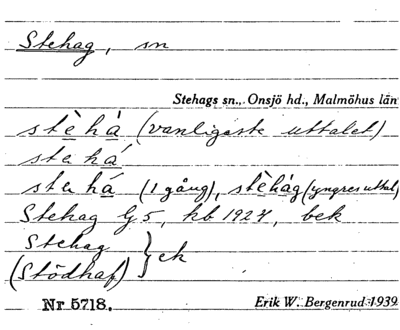 Stehag, sn
Stehags sn., Onsjö hd., Malmöhus län
stèhà (vanligaste uttalet)
stehá
stehá (1 gång), stèhàg (yngres uttal)
Stehag G5, kb 1927, bek
Stehag
(Stödhaf) } ek
Nr 5718. Erik W. Bergenrud 1939